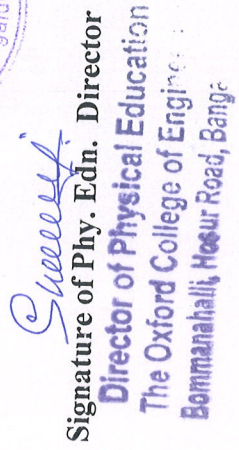 Signature of Phy. Edn. Director
Director of Physical Education
The Oxford College of
Bommanahalli, Hosur Road,